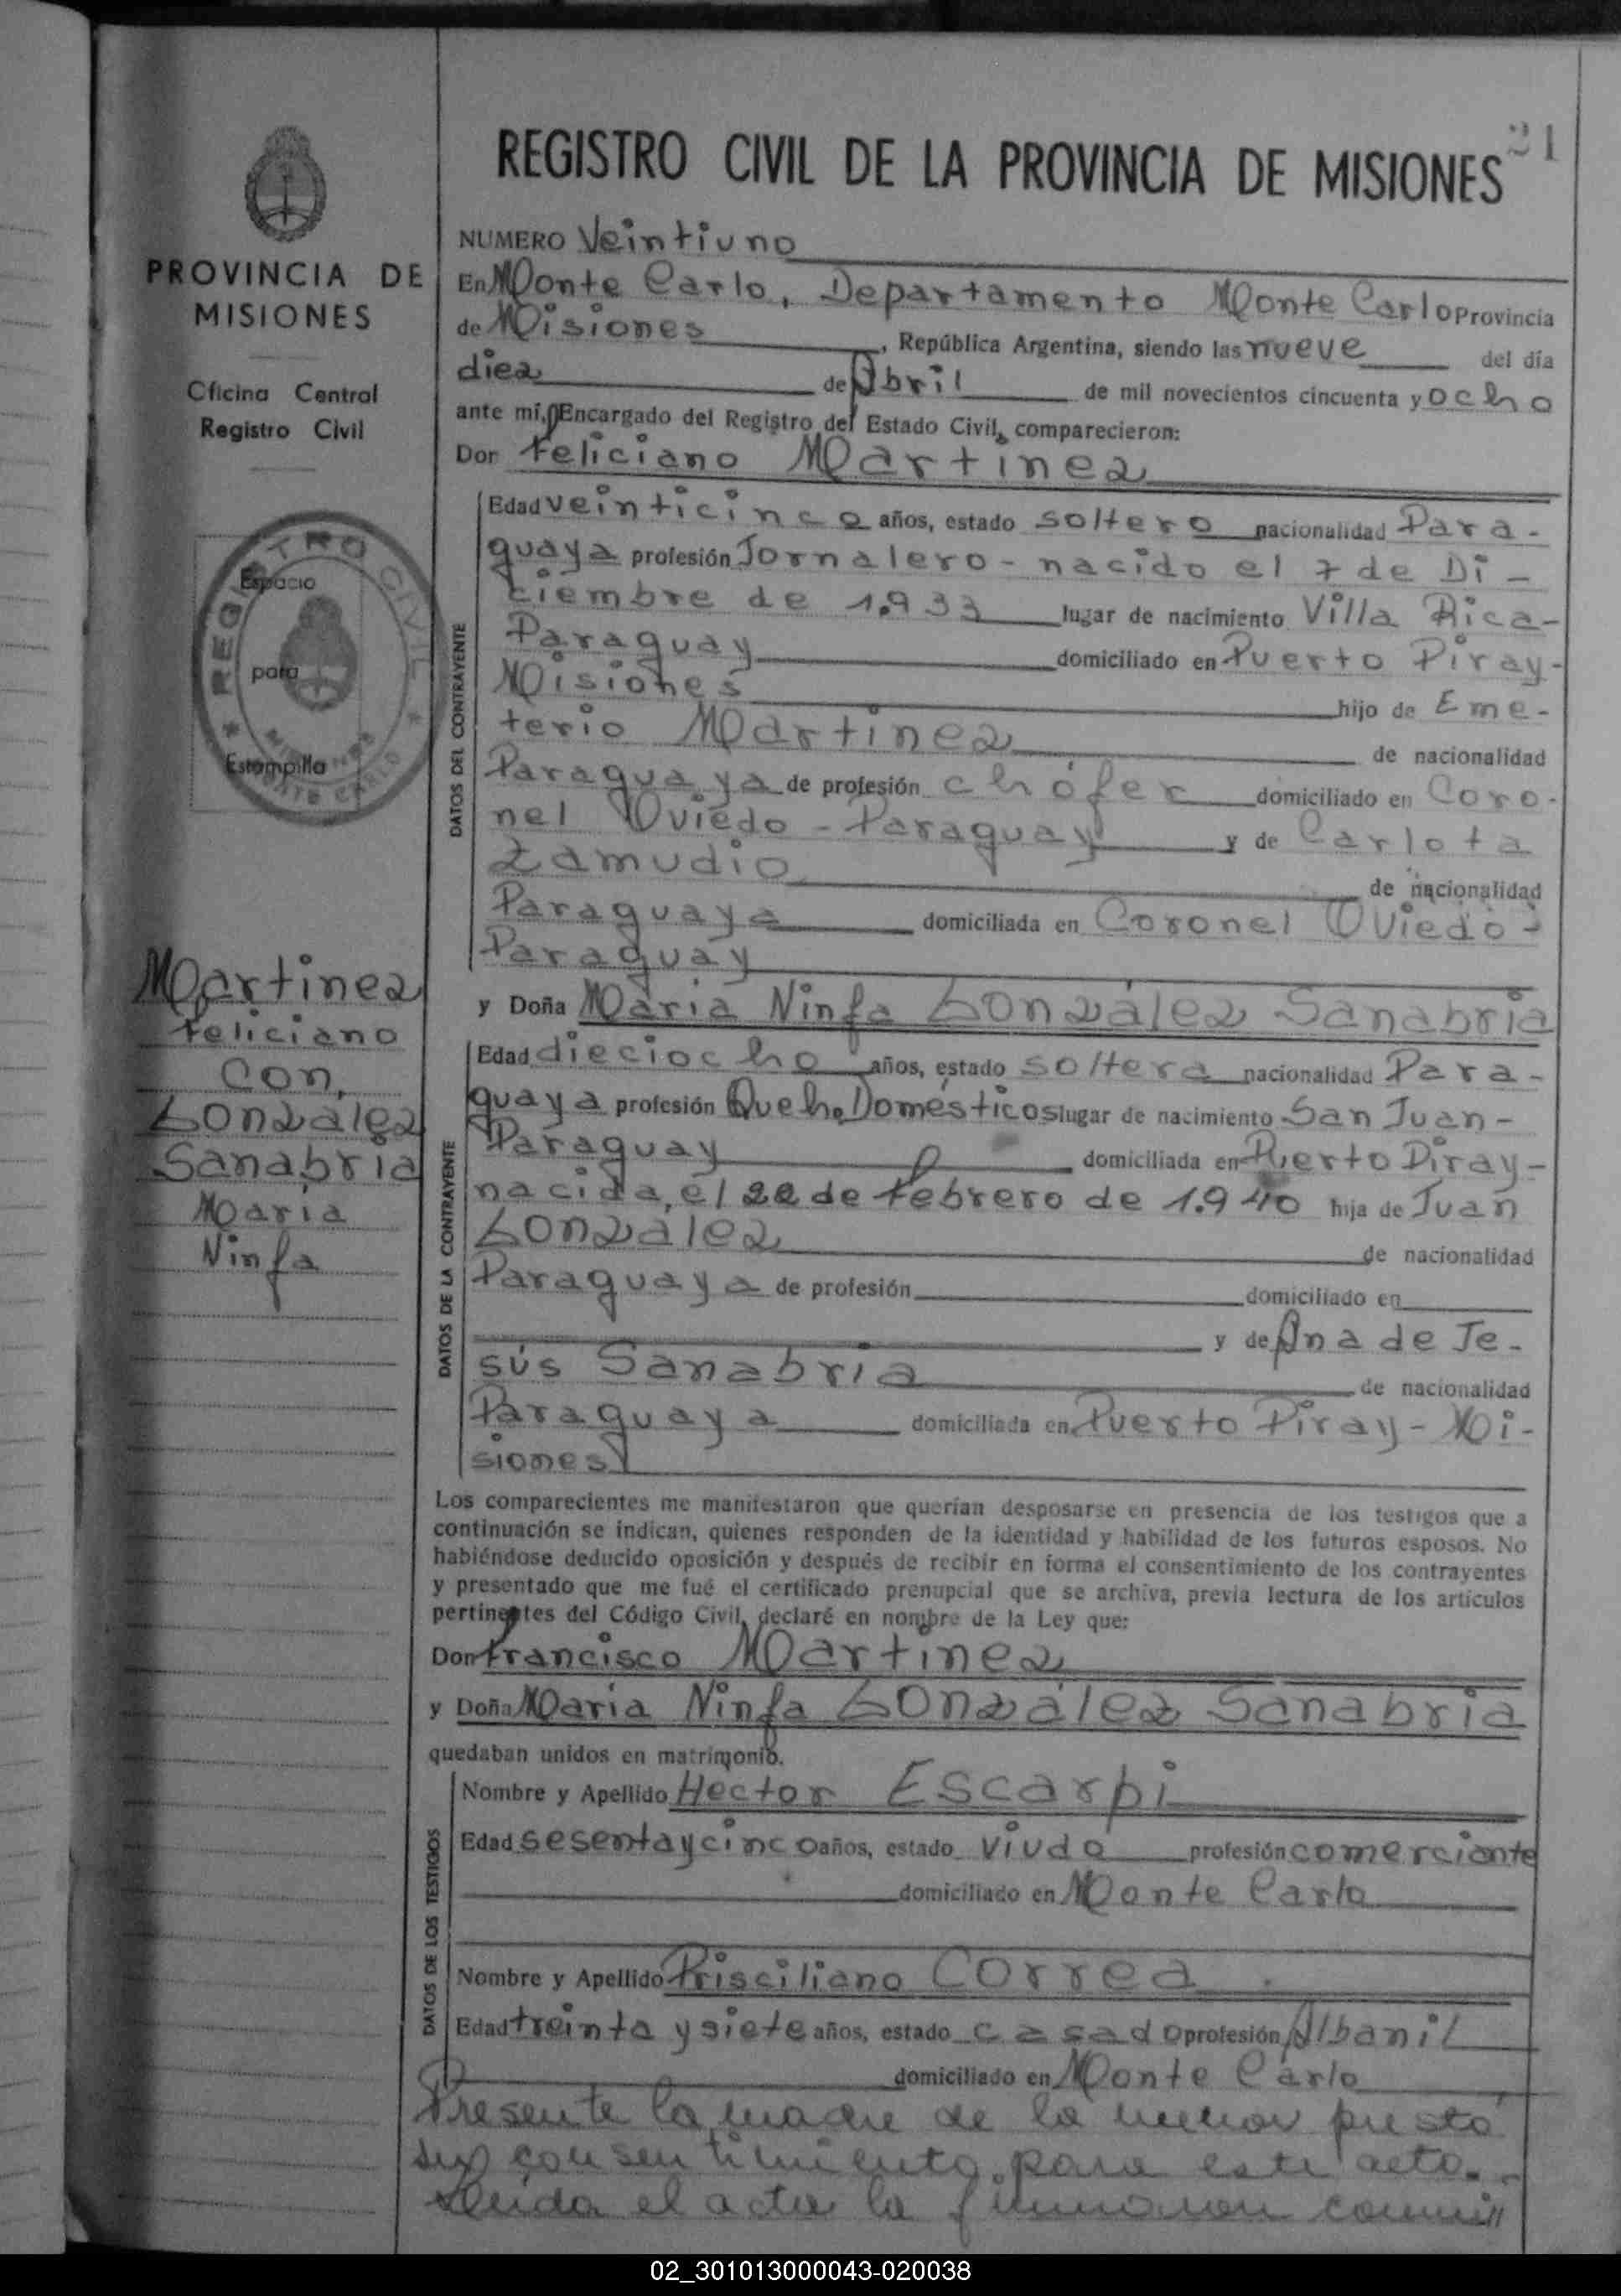 21
REGISTRO CIVIL DE LA PROVINCIA DE MISIONES
PROVINCIA DE
MISIONES
Oficina Central
Registro Civil
REGISTRO CIVIL
Espacio
para
Estampilla
MISIONES
MONTE CARLO
Martinez
Feliciano
Con
Gonzalez
Sanabria
Maria
Ninfa
NUMERO Veintiuno
En Monte Carlo, Departamento Monte Carlo Provincia
de Misiones, República Argentina, siendo las nueve del día
diez de Abril de mil novecientos cincuenta y ocho
ante mí, Encargado del Registro del Estado Civil, comparecieron:
Don Feliciano Martinez
DATOS DEL CONTRAYENTE
Edad veinticinco años, estado soltero nacionalidad Para-
guaya profesión Jornalero - nacido el 7 de Di-
ciembre de 1.933 lugar de nacimiento Villa Rica-
Paraguay domiciliado en Puerto Piray-
Misiones hijo de Eme-
terio Martinez de nacionalidad
Paraguaya de profesión chófer domiciliado en Coro-
nel Oviedo - Paraguay y de Carlota
Zamudio de nacionalidad
Paraguaya domiciliada en Coronel Oviedo-
Paraguay
y Doña Maria Ninfa González Sanabria
DATOS DE LA CONTRAYENTE
Edad dieciocho años, estado soltera nacionalidad Para-
guaya profesión Queh. Domésticos lugar de nacimiento San Juan-
Paraguay domiciliada en Puerto Piray-
nacida el 22 de Febrero de 1.940 hija de Juan
Gonzalez de nacionalidad
Paraguaya de profesión domiciliado en
y de Ana de Je-
sús Sanabria de nacionalidad
Paraguaya domiciliada en Puerto Piray - Mi-
siones
Los comparecientes me manifestaron que querían desposarse en presencia de los testigos que a
continuación se indican, quienes responden de la identidad y habilidad de los futuros esposos. No
habiéndose deducido oposición y después de recibir en forma el consentimiento de los contrayentes
y presentado que me fué el certificado prenupcial que se archiva, previa lectura de los artículos
pertinentes del Código Civil, declaré en nombre de la Ley que:
Don Francisco Martinez
y Doña Maria Ninfa González Sanabria
quedaban unidos en matrimonio.
DATOS DE LOS TESTIGOS
Nombre y Apellido Hector Escarpi
Edad sesenta y cinco años, estado viudo profesión comerciante
domiciliado en Monte Carlo
Nombre y Apellido Prisciliano Correa
Edad treinta y siete años, estado casado profesión Albanil
domiciliado en Monte Carlo
Presente la madre de la menor presto
su consentimiento para este acto.
Leida el acta la firmaron conmi
02_301013000043-020038